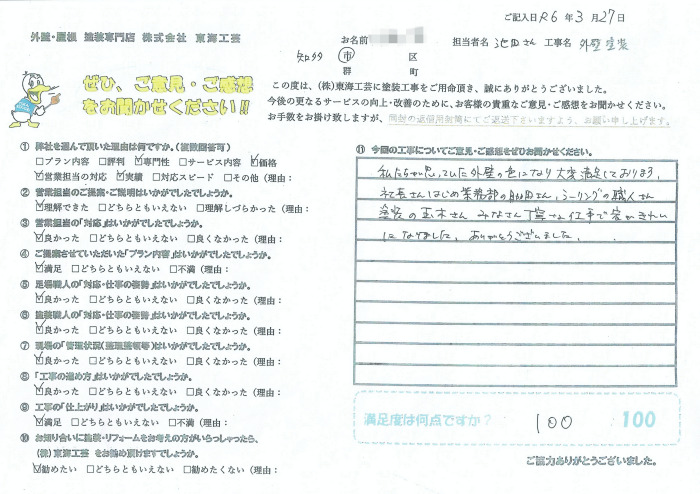 ご記入日 R6 年 3 月 27 日
外壁・屋根 塗装専門店 株式会社 東海工芸
お名前
担当者名 池田さん 工事名 外壁塗装
知多 市 区
郡 町
ぜひ、ご意見・ご感想
をお聞かせください!!
この度は、(株)東海工芸に塗装工事をご用命頂き、誠にありがとうございました。
今後の更なるサービスの向上・改善のために、お客様の貴重なご意見・ご感想をお聞かせください。
お手数をお掛け致しますが、同封の返信用封筒にてご返送下さいますよう、お願い申し上げます。
① 弊社を選んで頂いた理由は何ですか。(複数回答可)
□プラン内容 □評判 ☑専門性 □サービス内容 ☑価格
☑営業担当の対応 ☑実績 □対応スピード □その他(理由:
② 営業担当のご提案・ご説明はいかがでしたでしょうか。
☑理解できた □どちらともいえない □理解しづらかった(理由:
③ 営業担当の「対応」はいかがでしたでしょうか。
☑良かった □どちらともいえない □良くなかった(理由:
④ ご提案させていただいた「プラン内容」はいかがでしたでしょうか。
☑満足 □どちらともいえない □不満(理由:
⑤ 足場職人の「対応・仕事の姿勢」はいかがでしたでしょうか。
☑良かった □どちらともいえない □良くなかった(理由:
⑥ 塗装職人の「対応・仕事の姿勢」はいかがでしたでしょうか。
☑良かった □どちらともいえない □良くなかった(理由:
⑦ 現場の「管理状況(整理整頓等)はいかがでしたでしょうか。
☑良かった □どちらともいえない □良くなかった(理由:
⑧ 「工事の進め方」はいかがでしたでしょうか。
☑良かった □どちらともいえない □良くなかった(理由:
⑨ 工事の「仕上がり」はいかがでしたでしょうか。
☑満足 □どちらともいえない □不満(理由:
⑩ お知り合いに塗装・リフォームをお考えの方がいらっしゃったら、
(株)東海工芸 をお勧め頂けますでしょうか。
☑勧めたい □どちらともいえない □勧めたくない(理由:
⑪ 今回の工事についてご意見・ご感想をぜひお聞かせください。
私たちが思っていた外壁の色になり大変満足しております。
社長さんはじめ業務部の さん、シーリングの職人さん
塗装の玉木さん みなさん丁寧な仕事で家がきれい
になりました。ありがとうございました。
満足度は何点ですか? 100 100
ご協力ありがとうございました。